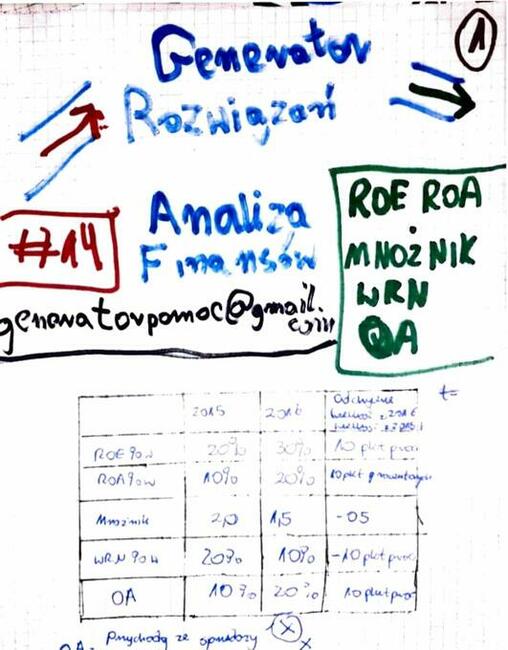 1
Generator
Rozwiązań
#714
Analiza
Finansów
generatorpomoc@gmail.com
ROE ROA
MNOŻNIK
WRN
OA
t=
2015 2016 Odchylenie
ROE 90w 20% 30% 10 pkt proc
ROA 90w 10% 20% 10 pkt procentowych
Mnożnik 2,0 1,5 -05
WRN 90w 20% 10% -10 pkt proc
OA 10% 20% 10 pkt proc
OA= Przychody ze sprzedaży x x